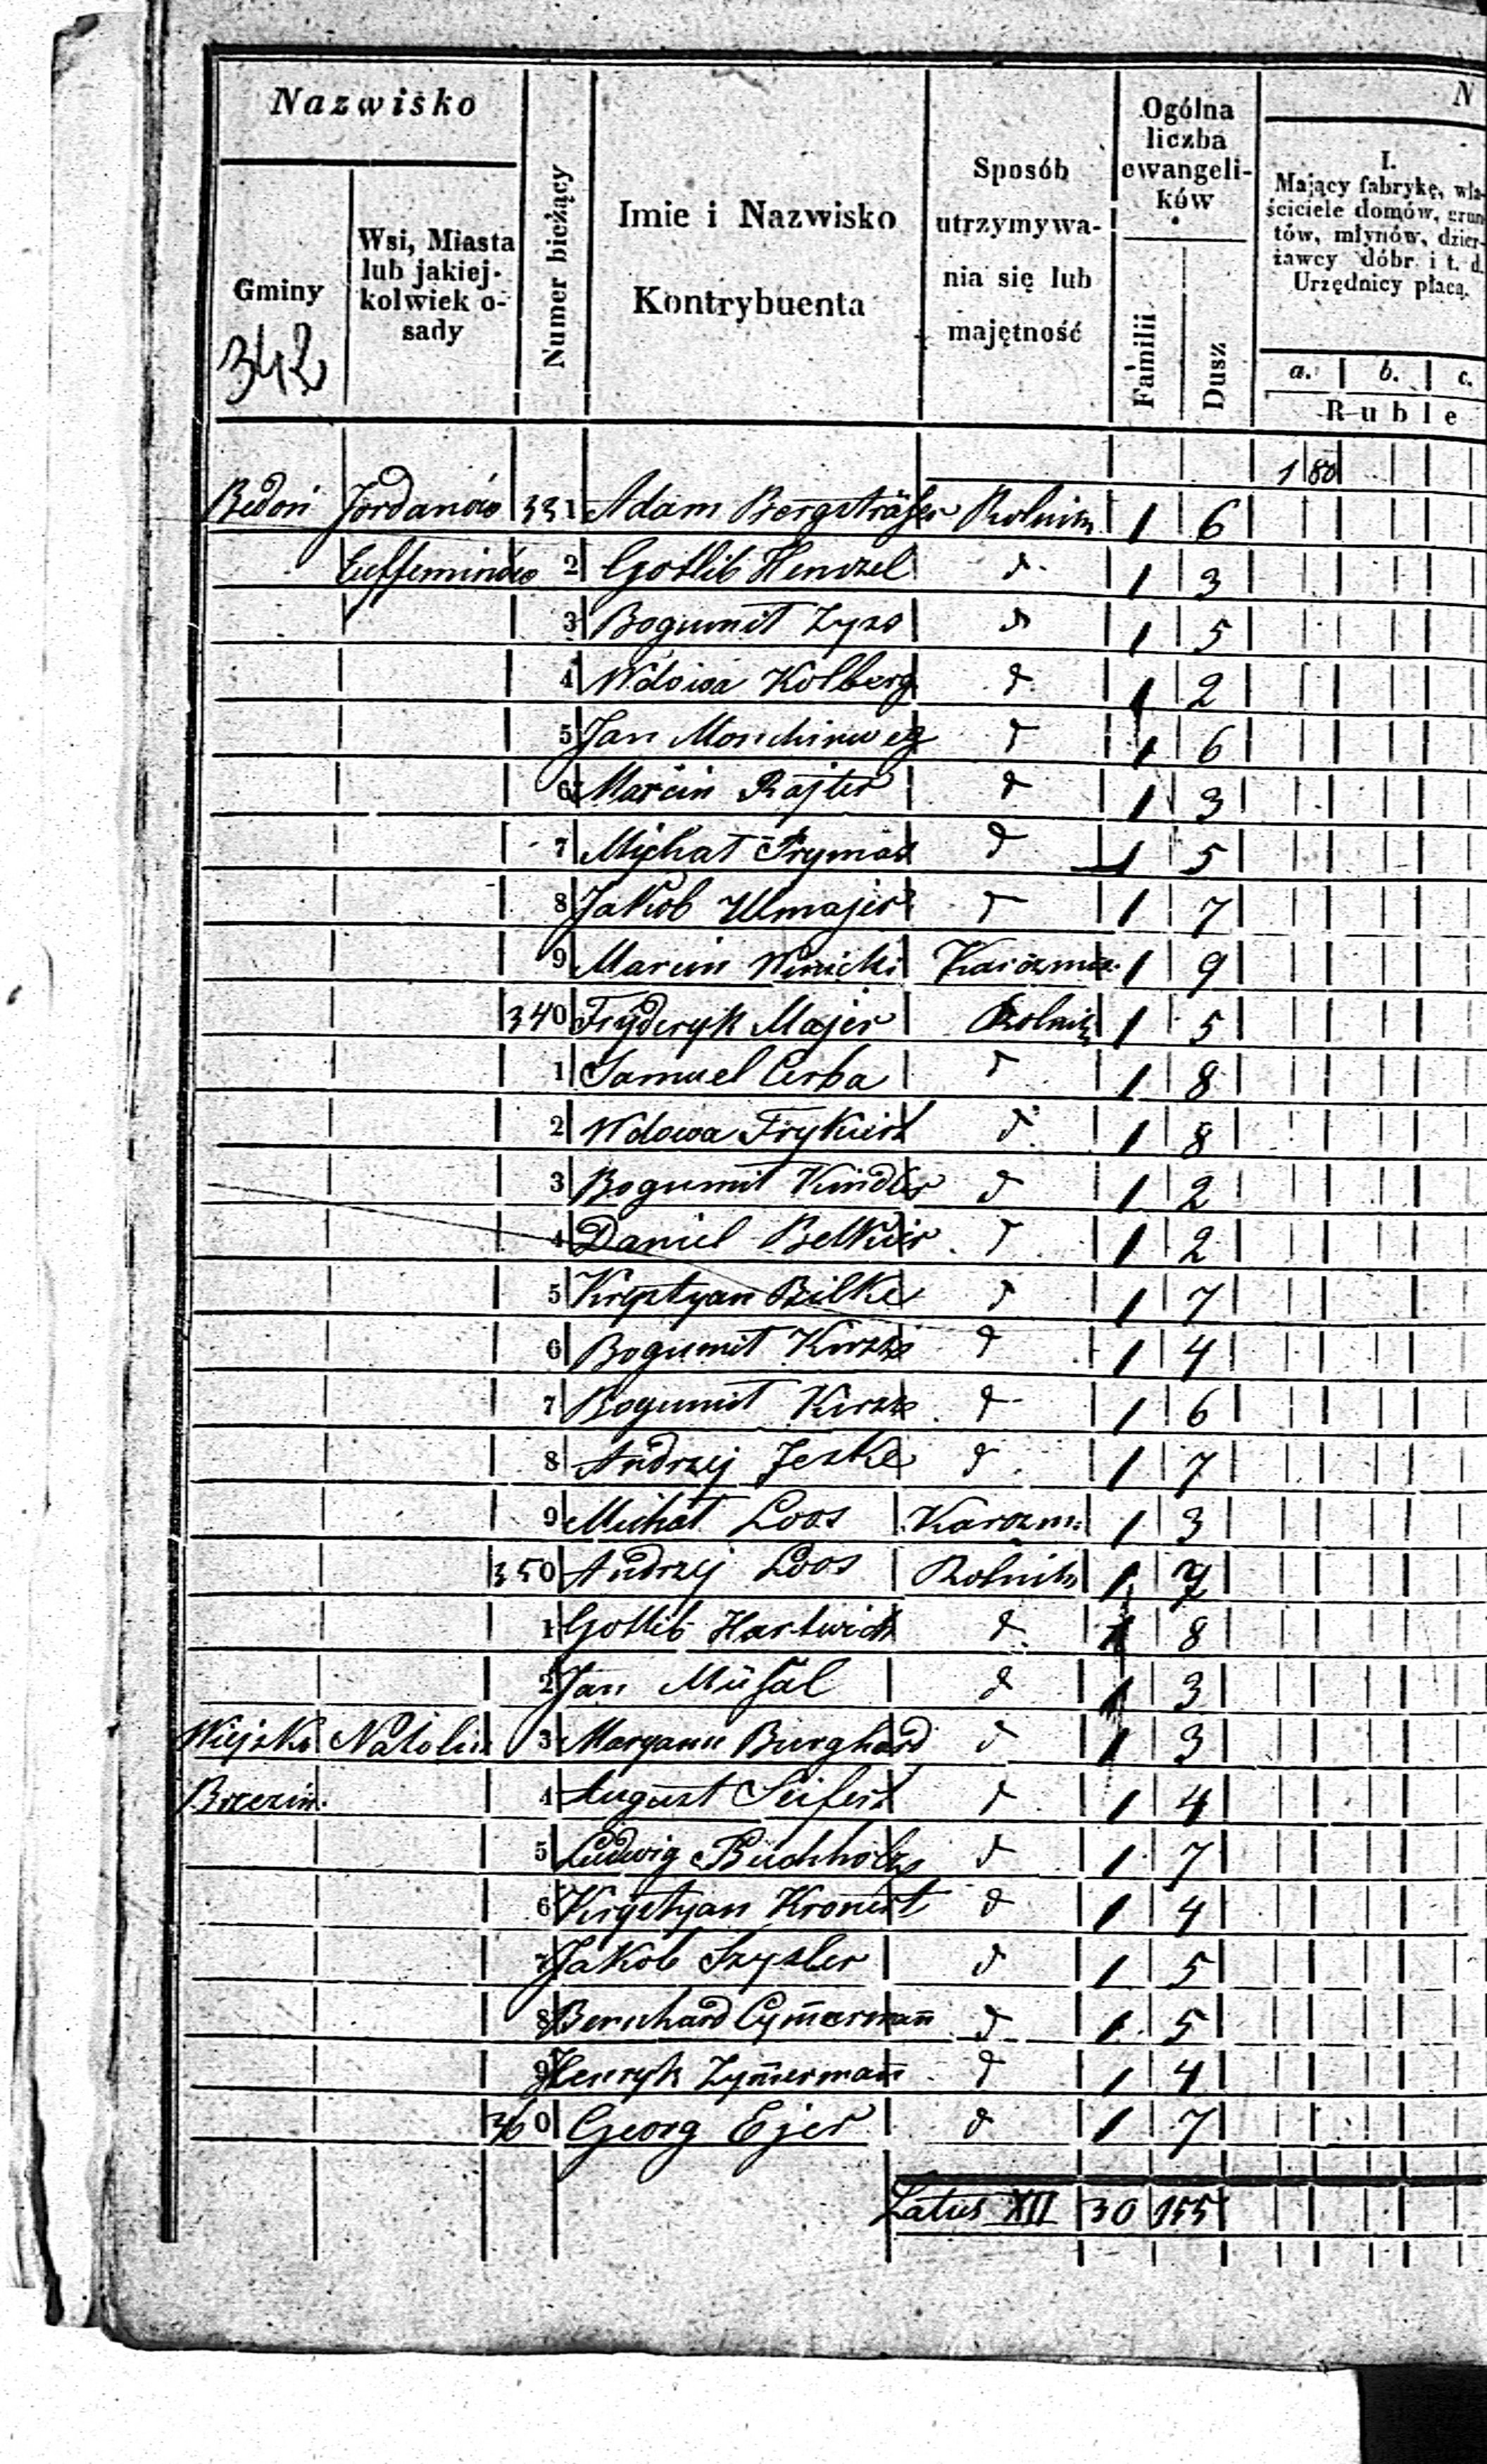 Nazwisko
Gminy
Wsi, Miasta lub jakiej-kolwiek o-sady
Numer bieżący
Imie i Nazwisko Kontrybuenta
Sposób utrzymywa-nia się lub majętność
Ogólna liczba ewangeli-ków
Familii
Dusz
N
I. Mający fabrykę, wła-ściciele domów, grun-tów, młynów, dzier-żawcy dóbr i t. d. Urzędnicy płacą.
a. b. c.
Ruble
342
1 80
Bedoń Jordanów 331 Adam Bergsträßer Rolnik 1 6
Eufeminów 2 Gotlib Henzel d 1 3
3 Bogumił Zyss d 1 5
4 Wdowa Kolberg d 1 2
5 Jan d 1 6
6 Marcin Rajter d 1 3
7 Michał Fryman d 1 5
8 Jakób Ulmajer d 1 7
9 Marcin Winicki Karczmar. 1 9
340 Fryderyk Majer Rolnik 1 5
1 Samuel Cerba d 1 8
2 Wdowa d 1 8
3 Bogumił Kindler d 1 2
4 Daniel d 1 2
5 Krystyan Bilke d 1 7
6 Bogumił d 1 4
7 Bogumił d 1 6
8 Andrzej Jeske d 1 7
9 Michał Loos Karczm: 1 3
350 Andrzej Loos Rolnik 1 7
1 Gotlib Hartwich d 1 8
2 Jan Müsal d 1 3
Wiejska Natolin 3 Maryann Burghard d 1 3
Brzezin. 4 August Seifert d 1 4
5 Ludwig Buchholz d 1 7
6 Krystyan Kronert d 1 4
7 Jakob Szysler d 1 5
8 Bernhard Cym̄erman̄ d 1 5
9 Henryk Zym̄erman̄ d 1 4
360 Georg Ejer d 1 7
Latus XII 30 155